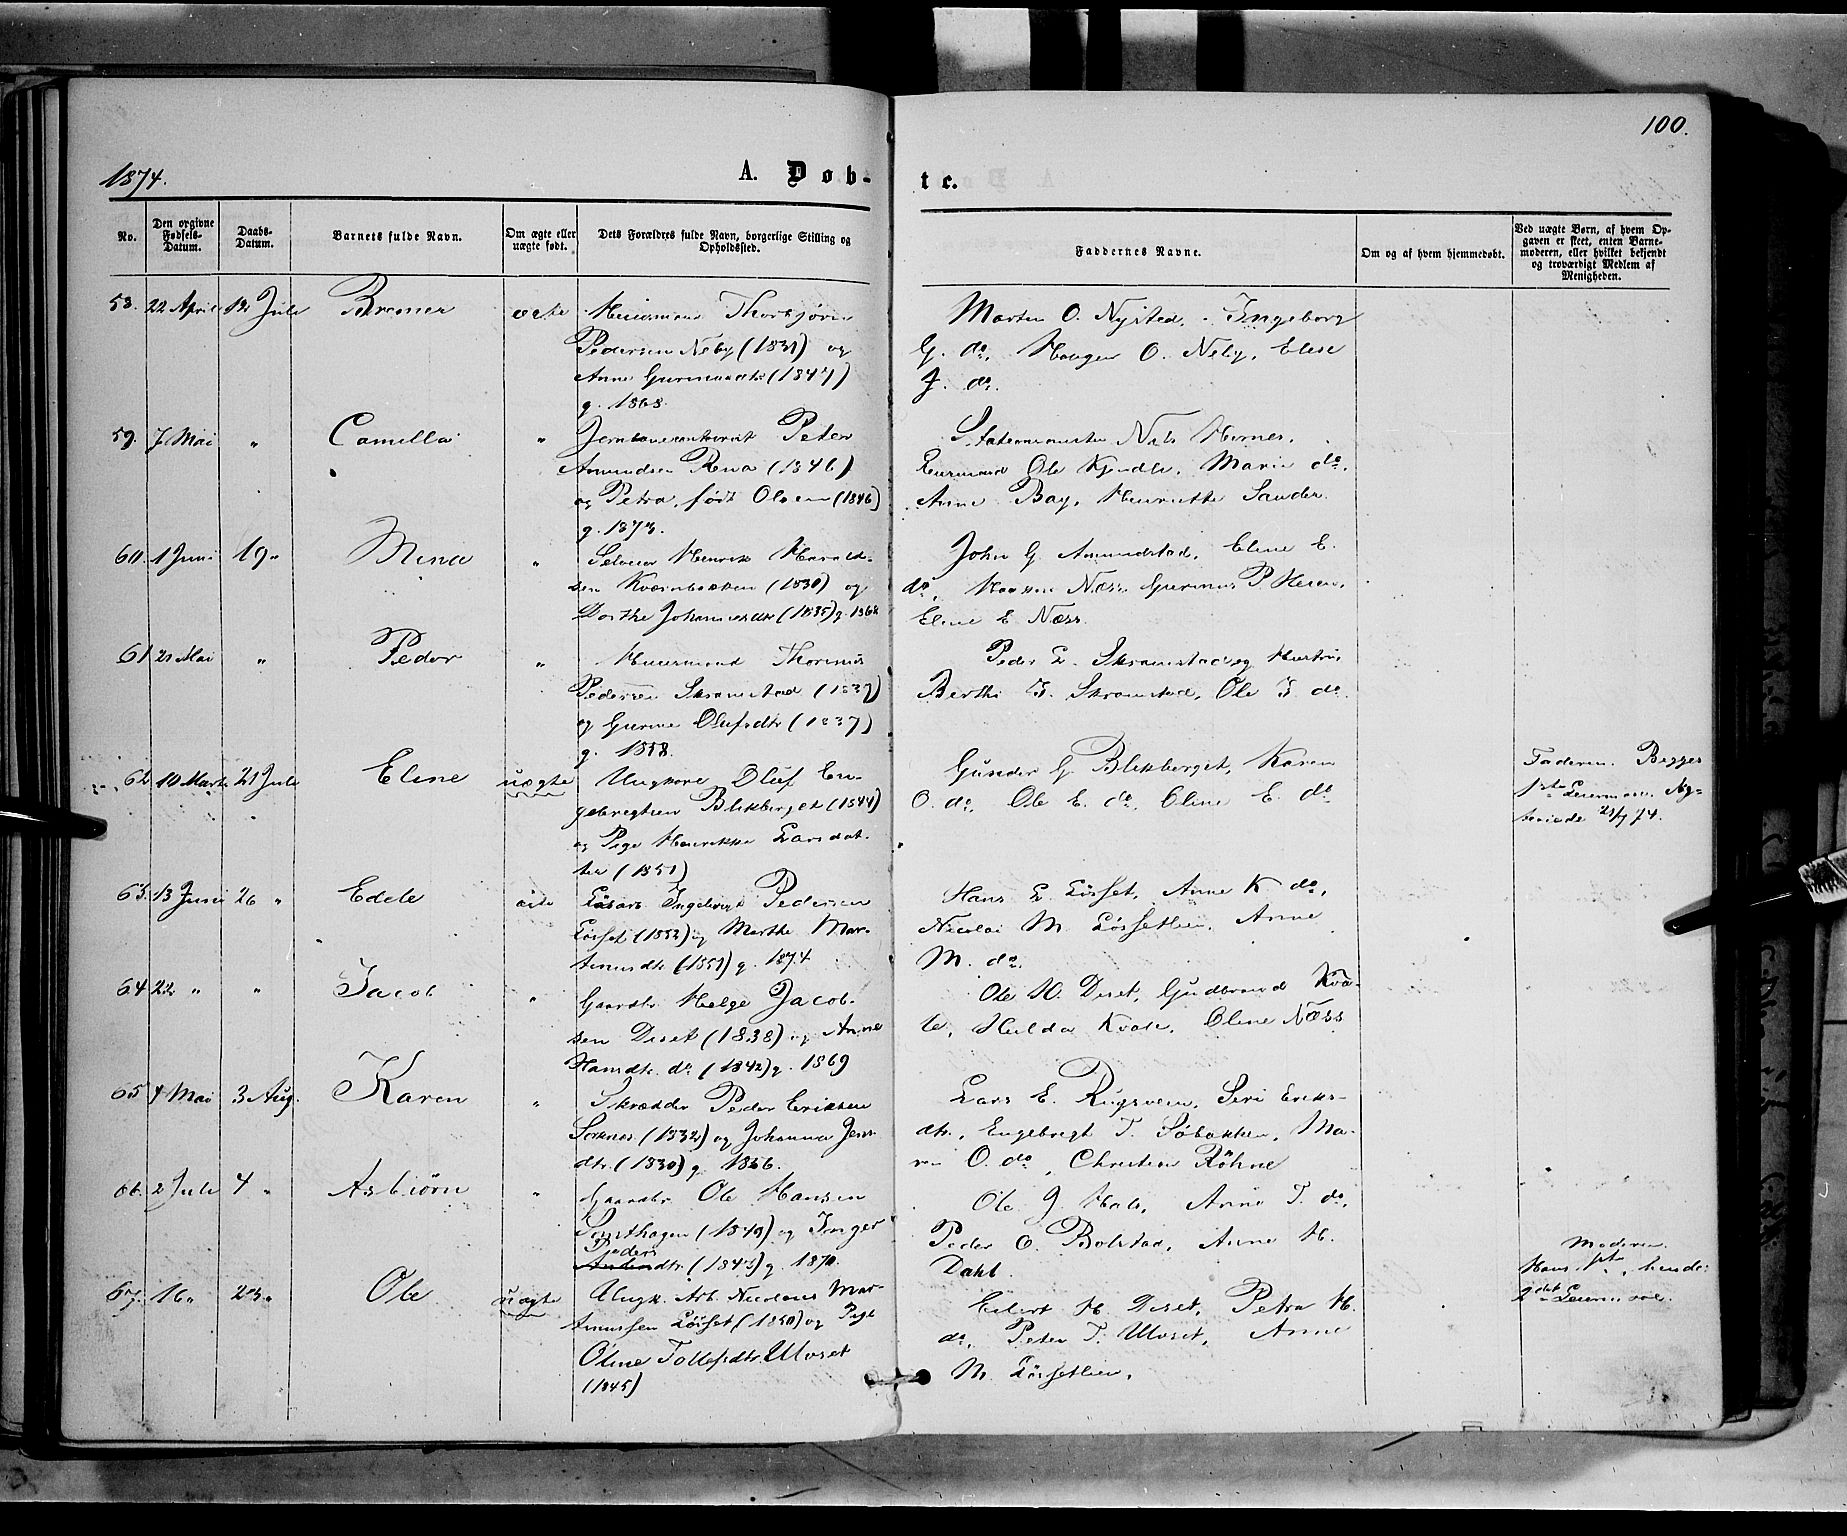 100.
1874.
A. Døb-
te.
No.
Den opgivne Fødsels-Datum.
Daabs-Datum.
Barnets fulde Navn.
Om ægte eller uægte født.
Dets Forældres fulde Navn, borgerlige Stilling og Opholdssted.
Faddernes Navne.
Om og af hvem hjemmedøbt.
Ved uægte Børn, af hvem Op-
gaven er skeet, enten Barne-
moderen, eller hvilket bekjendt
og troværdigt Medlem af
Menigheden.
58. 22 April 12 Juli
Thorbjørn
Pedersen Neby (1831) og
Anne
g. 1868.
Morten O. Nysted, Ingeborg
G. do, Haagen O. Neby, Elise
J. do.
59. 7 Mai " Camilla "
Peter
Amundsen Rena (1846)
og Petra, født Olsen (1846)
g. 1873.
Nils Hernes,
Ole Kjendli, Marie do,
Anne Bay, Henriette Sander.
60. 1 Juni 19 " Mina "
Selveier Henrik Harald-
sen Kværnbækken (1830) og
Dorthe Johannesdtr (1835) g. 1868
John G. Amundstad, Eline E.
do, Haakon Næss, P.
Eline E. Næss.
61 21 Mai " Peder "
Huusmand Thorinus
Pedersen Skramstad (1839)
og Gurine Olufsdtr (1837)
g. 1858.
Peder L. Skramstad og Hustru
Berthe J. Skramstad, Ole J. do.
62 10 Marts 21 Juli Eline uægte
Ungkarl Oluf En-
gebregtsen Blikberget (1844)
og Pige Henrikke Larsdat-
ter (1851)
Gunder G. Blikberget, Karen
O. do, Ole E. do, Oline E. do
Faderen. Begges
1ste Leiermaal.
21/7 74.
63. 13 Juni 26 " Edele
Ingebrigt Pedersen
Løsset (1852) og Marthe Mar-
tinusdtr (1851) g. 1874.
Hans L. Løsset, Anne K. do,
Nicolai M. Løssetlien, Anne
M. do.
64 22 " " Jacob "
Gaardbr. Helge Jacob-
sen Deset (1838) og Anne
Hansdtr. do (1842) g. 1869
Ole H. Deset, Gudbrand Kva-
le, Hulda Kvale, Oline Næss
65 4 Mai 3 Aug. Karen "
Skrædder Peder Eriksen
Sorknes (1832) og Johanna Jens-
dtr. (1830) g. 1856.
Lars E. Rugsveen, Siri Eriks-
dtr., Engebregt T. Søbakken, Ma-
O. do, Christian Röhne
66. 2 Juli 4 " Asbiørn "
Gaardbr. Ole Hansen
(1840) og Inger
Peders
dtr. (1843) g. 1870.
Ole J. Hole, Anne T. do,
Peder O. Bolstad, Anne H.
Dahl.
67. 16 " 23 " Ole uægte
Ungk. Arb. Nicolaus Mar-
tinussen Løsset (1850) og Pige
Oline Tollefsdtr. Ulvset
(1845)
Eilert H. Deset, Petra H.
do, Peter T. Ulvset, Anne
M. Løssetlien.
Moderen.
Hans 1ste, hendes
2det Leiermaal.